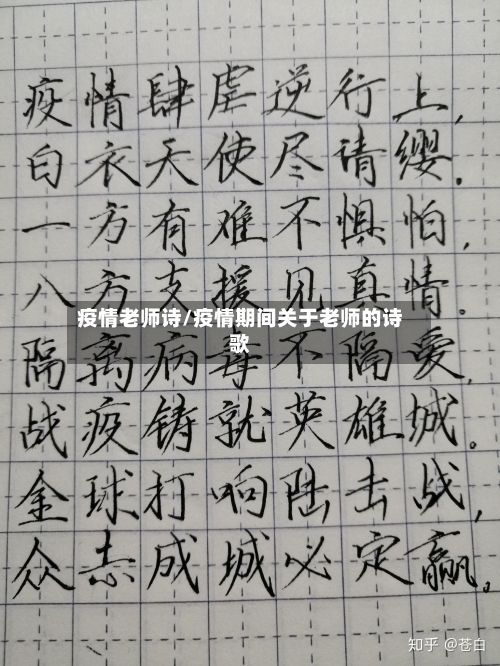 疫情肆虐逆行上,
白衣天使尽请缨。
一方有难不惧怕,
八方支援见真情。
疫情老师诗/疫情期间关于老师的诗
歌
隔离病毒不隔爱,
战疫铸就英雄城。
全球打响陆击战,
众志成城必定赢。
知乎 @苍白